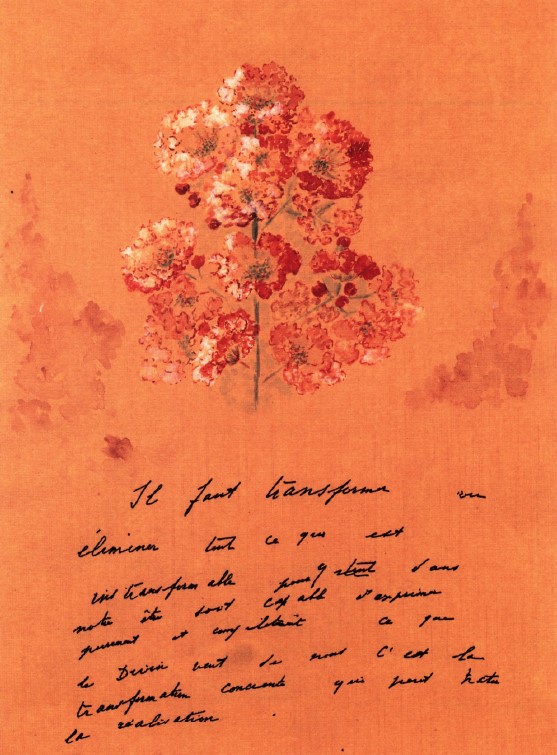 Il faut transformer ou
éliminer tout ce qui est
intransformable pour que tout dans
notre être soit capable d'exprimer
purement et complètement ce que
le Divin veut de nous C'est la
transformation consciente qui peut hâter
la réalisation